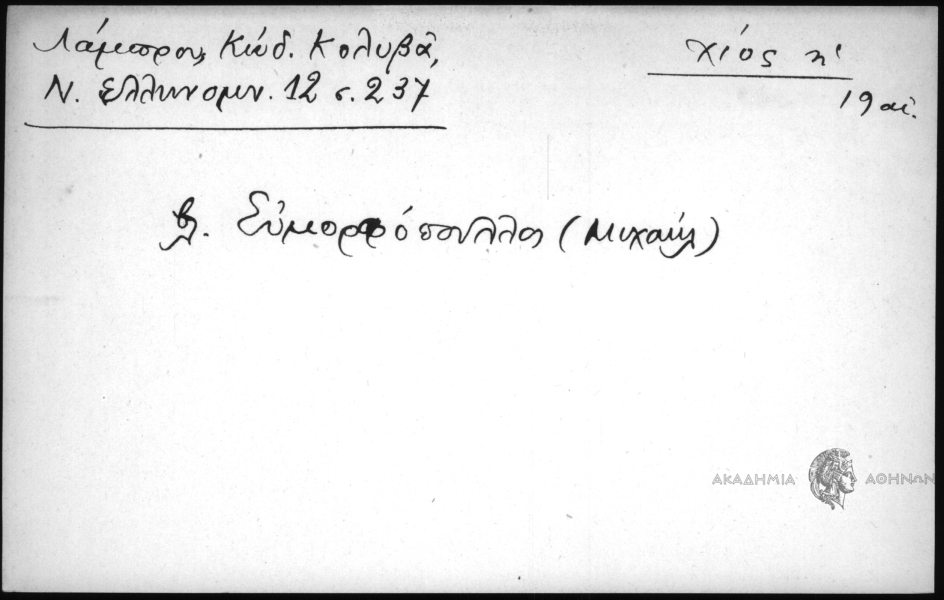 Λάμπρου, Κώδ. Κολυβᾶ,
Ν. Ἑλληνομν. 12 σ. 237
Χίος κ'
19 αἰ.
Εὐμορφόπουλλος (Μιχαήλ)
ΑΚΑΔΗΜΙΑ ΑΘΗΝΩΝ